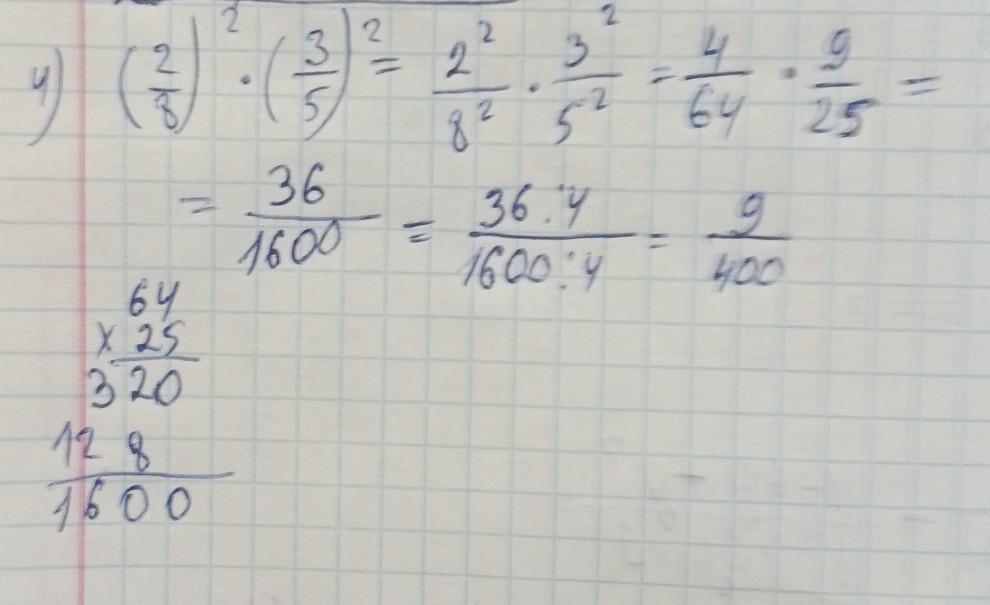 4) (2/8)² · (3/5)² = 2²/8² · 3²/5² = 4/64 · 9/25 =
= 36/1600 = 36:4/1600:4 = 9/400
64
× 25
320
128
1600